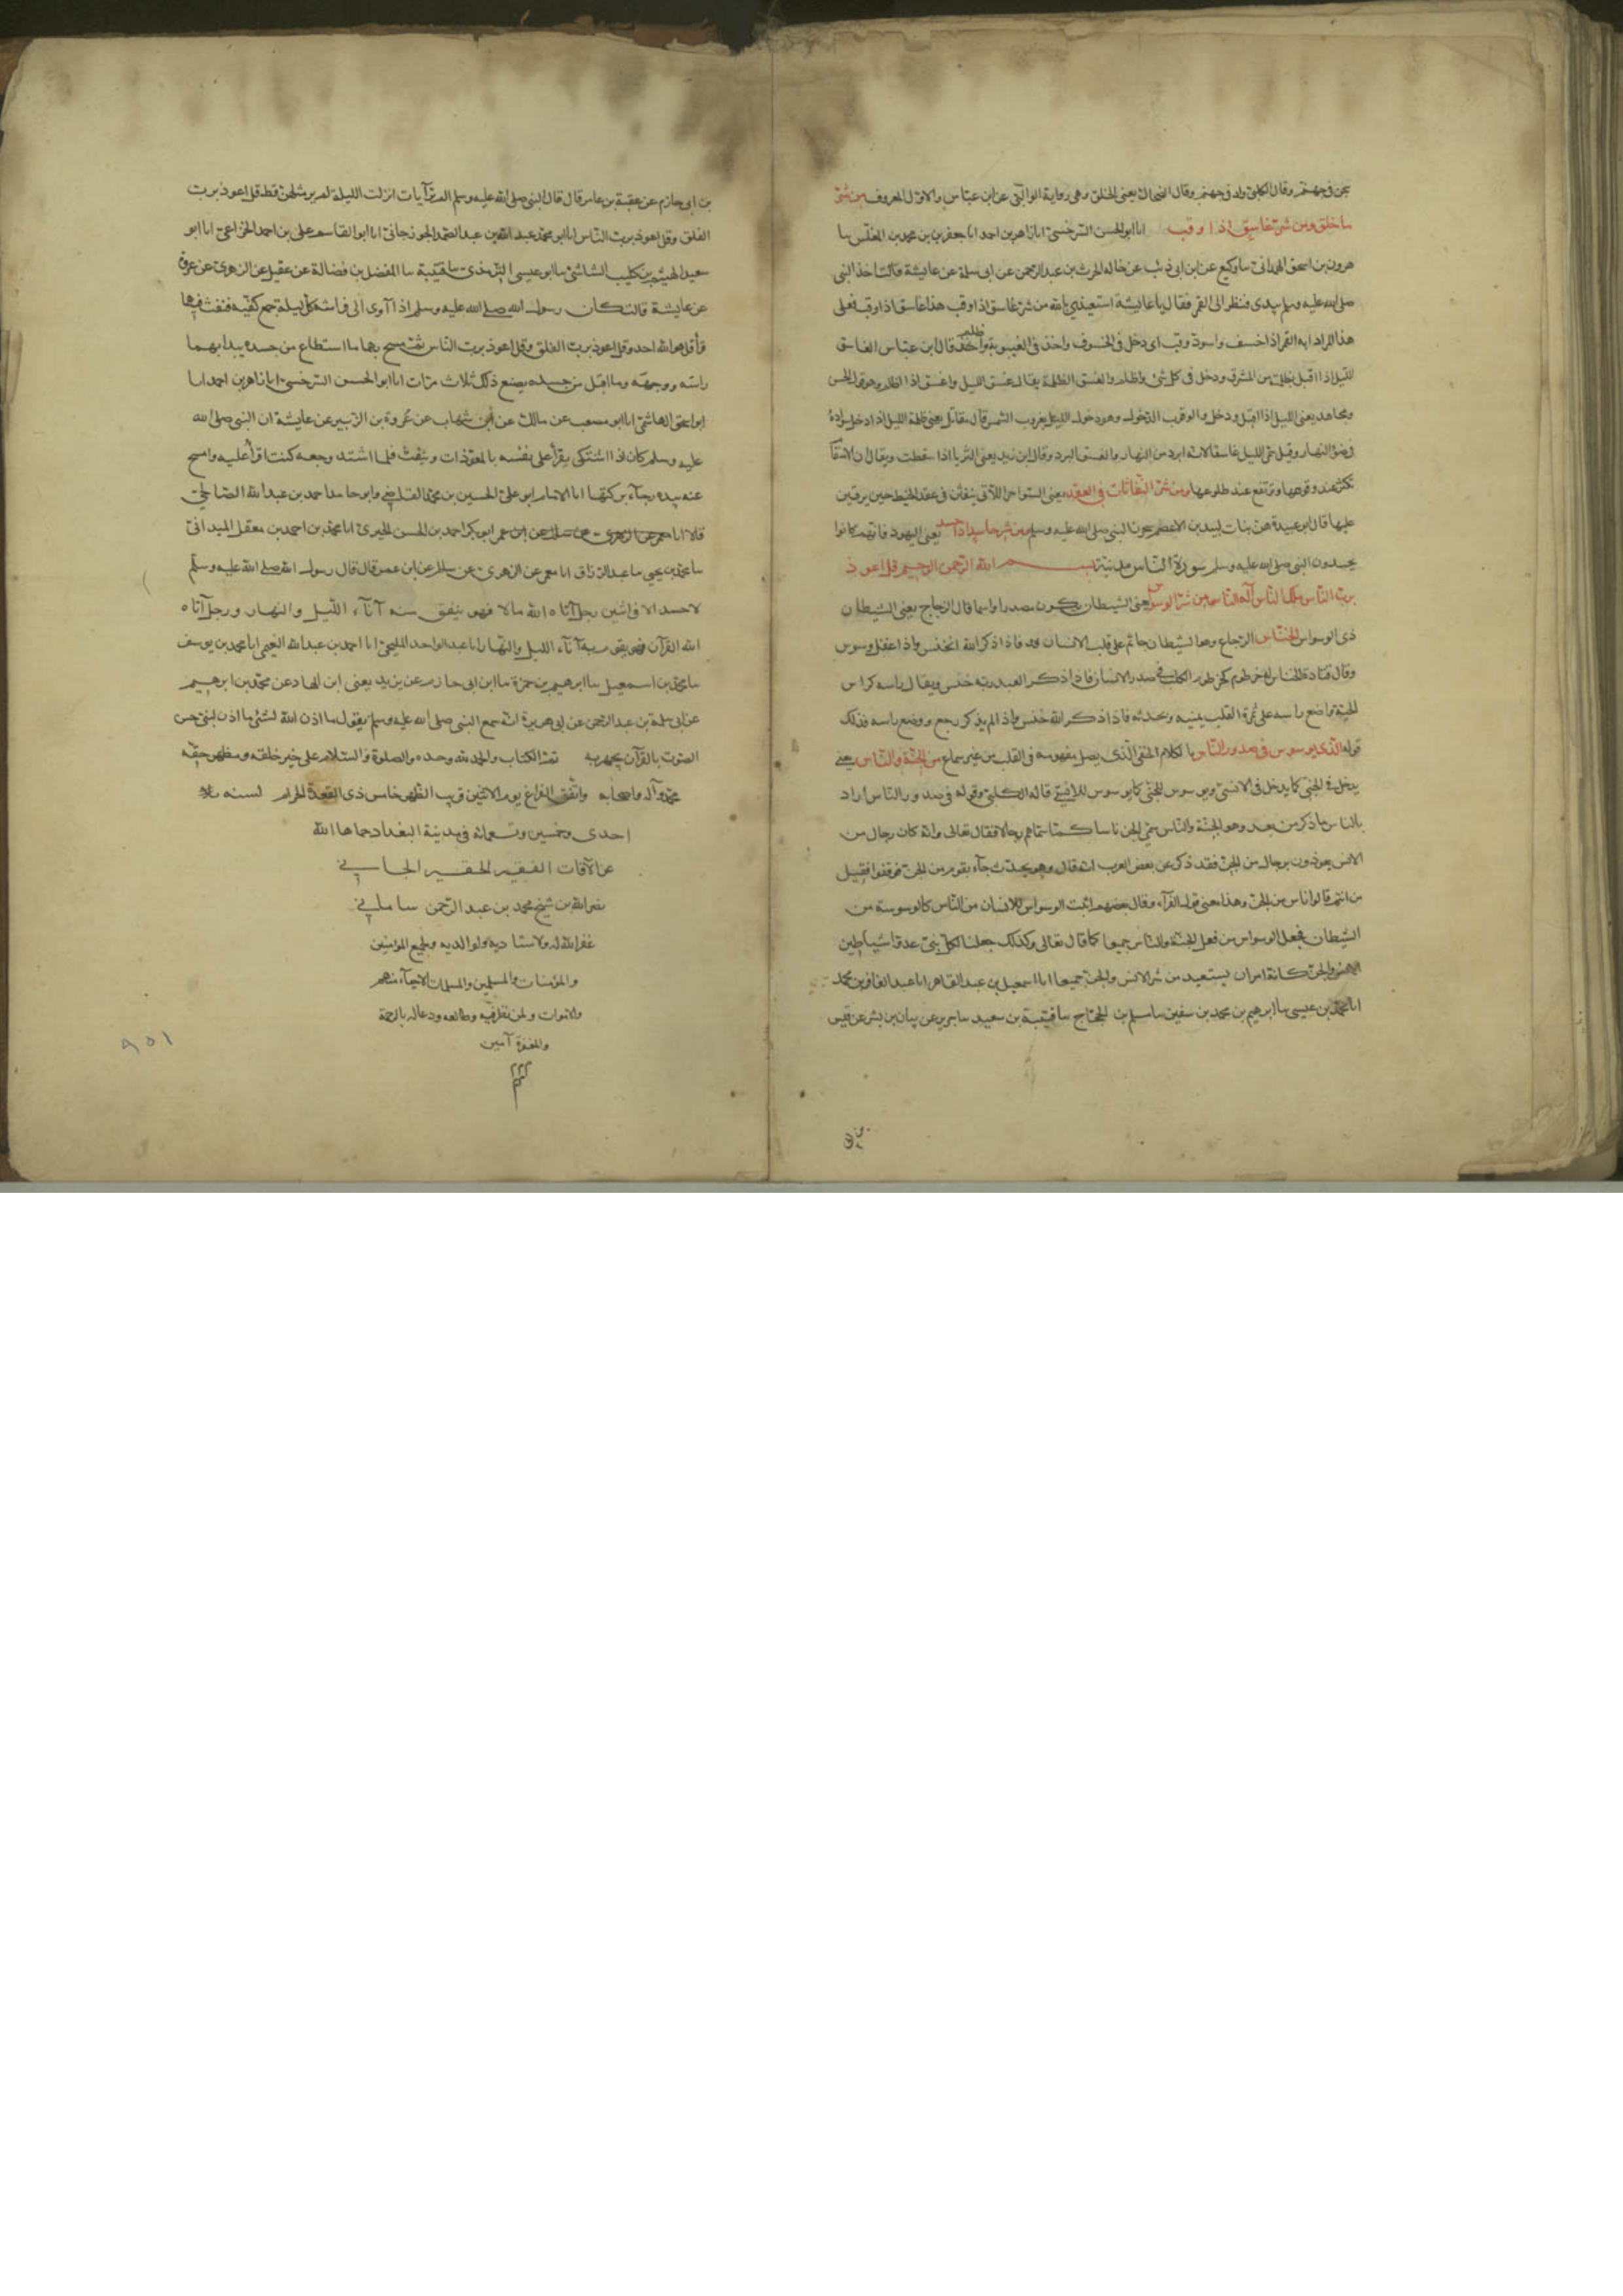 سجن في جهنم وقال الكلبي واد في جهنم وقال الضحاك يعني الخلق وهي رواية الوالبي عن ابن عباس والاول المعروف من شر
ما خلق ومن شر غاسق اذا وقب انا ابو الحسن السرخسي انا زاهر بن احمد انا جعفر بن محمد بن المغلس سا
هرون بن اسحق الهمداني سا وكيع عن ابن ابي ذئب عن خاله الحرث بن عبد الرحمن عن ابي سلمة عن عايشة قالت اخذ النبي
صلى الله عليه وسلم بيدي فنظر الى القمر فقال يا عايشة استعيذي بالله من شر غاسق اذا وقب هذا غاسق اذا وقب فعلى
هذا المراد به القمر اذا خسف واسود وقب اي دخل في الخسوف واخذ في الغيبوبة واظلم قال ابن عباس الغاسق
الليل اذا اقبل بظلمته من المشرق ودخل في كل شئ واظلم والغسق الظلمة يقال غسق الليل واغسق اذا اظلم وهو قول الحسن
ومجاهد يعني الليل اذا اقبل ودخل والوقوب الدخول وهو دخول الليل بغروب الشمس قال مقاتل يعني ظلمة الليل اذا دخل سواده
في ضوء النهار وقيل سمي الليل غاسقا لانه ابرد من النهار والغسق البرد وقال ابن زيد يعني الثريا اذا سقطت ويقال ان الاسقام
تكثر عند وقوعها وترتفع عند طلوعها ومن شر النفاثات في العقد يعني السواحر اللاتي ينفثن في عقد الخيط حين يرقين
عليها قال ابو عبيدة هن بنات لبيد بن الاعصم سحرن النبي صلى الله عليه وسلم ومن شر حاسد اذا حسد يعني اليهود فانهم كانوا
يحسدون النبي صلى الله عليه وسلم سورة الناس مدنية بسم الله الرحمن الرحيم قل اعوذ
برب الناس ملك الناس اله الناس من شر الوسواس يعني الشيطان يكون مصدرا واسما قال الزجاج يعني الشيطان
ذي الوسواس الخناس الرجاع وهو الشيطان جاثم على قلب الانسان فاذا ذكر الله انخنس واذا غفل وسوس
وقال قتادة الخناس له خرطوم كخرطوم الكلب في صدر الانسان فاذا ذكر العبد ربه خنس ويقال راسه كراس
الحية واضع راسه على ثمرة القلب يمنيه ويحدثه فاذا ذكر الله خنس واذا لم يذكر رجع ووضع راسه فذلك
قوله الذي يوسوس في صدور الناس بالكلام الخفي الذي يصل مفهومه في القلب من غير سماع من الجنة والناس يعني
يدخل في الجني كما يدخل في الانسي ويوسوس للجني كما يوسوس للانسي قاله الكلبي وقوله في صدور الناس اراد
بالناس ما ذكر من بعد وهو الجنة والناس سمي الجن ناسا كما سماهم رجالا فقال تعالى وانه كان رجال من
الانس يعوذون برجال من الجن فقد ذكر عن بعض العرب انه قال وهو يحدث جاء قوم من الجن فوقفوا فقيل
من انتم قالوا اناس من الجن وهذا معنى قول الفراء وقال بعضهم اثبت الوسواس للانسان من الناس كالوسوسة من
الشيطان فجعل الوسواس من فعل الجنة والناس جميعا كما قال تعالى وكذلك جعلنا لكل نبي عدوا شياطين
الانس والجن كانه امر ان يستعيذ من شر الانس والجن جميعا انا اسمعيل بن عبد القاهر انا عبد الغافر بن محمد
انا محمد بن عيسى سا ابرهيم بن محمد بن سفين سا مسلم بن الحجاج سا قتيبة بن سعيد سا جرير عن بيان بن بشر عن قيس
بن ابي حازم عن عقبة بن عامر قال قال النبي صلى الله عليه وسلم الم تر آيات انزلت الليلة لم ير مثلهن قط قل اعوذ برب
الفلق وقل اعوذ برب الناس انا ابو محمد عبد الله بن عبد الصمد الجوزجاني انا ابو القاسم علي بن احمد الخزاعي انا ابو
سعيد الهيثم بن كليب الشاشي سا ابو عيسى الترمذي سا قتيبة سا المفضل بن فضالة عن عقيل عن الزهري عن عروة
عن عايشة قالت كان رسول الله صلى الله عليه وسلم اذا آوى الى فراشه كل ليلة جمع كفيه فنفث فيهما
وقرأ قل هو الله احد وقل اعوذ برب الفلق وقل اعوذ برب الناس ثم مسح بهما ما استطاع من جسده يبدا بهما
راسه ووجهه وما اقبل من جسده يصنع ذلك ثلاث مرات انا ابو الحسن السرخسي انا زاهر بن احمد انا
ابو اسحق الهاشمي انا ابو مصعب عن مالك عن ابن شهاب عن عروة بن الزبير عن عايشة ان النبي صلى الله
عليه وسلم كان اذا اشتكى يقرأ على نفسه بالمعوذات وينفث فلما اشتد وجعه كنت اقرأ عليه وامسح
عنه بيده رجاء بركتها انا الامام ابو علي الحسين بن محمد القاضي وابو حامد احمد بن عبد الله الصالحي
قالا انا ابو بكر احمد بن الحسن الحيري انا محمد بن احمد بن معقل الميداني
سا محمد بن يحيى سا عبد الرزاق انا معمر عن الزهري عن سالم عن ابن عمر قال قال رسول الله صلى الله عليه وسلم
لا حسد الا في اثنين رجل آتاه الله مالا فهو ينفق منه آناء الليل والنهار ورجل آتاه
الله القرآن فهو يقوم به آناء الليل والنهار انا عبد الواحد المليحي انا احمد بن عبد الله النعيمي انا محمد بن يوسف
سا محمد بن اسمعيل سا ابرهيم بن حمزة سا ابن ابي حازم عن يزيد يعني ابن الهاد عن محمد بن ابرهيم
عن ابي سلمة بن عبد الرحمن عن ابي هريرة انه سمع النبي صلى الله عليه وسلم يقول ما اذن الله لشئ ما اذن لنبي حسن
الصوت بالقرآن يجهر به تمت الكتاب والحمد لله وحده والصلوة والسلام على خير خلقه ومظهر حقه
محمد وآله واصحابه واتفق الفراغ يوم الاثنين قرب الظهر خامس ذي القعدة الحرام لسنه
احدى وخمسين وتسعمائه في مدينة البغداد حماها الله
عن الآفات الفقير الحقير الجاني
نصر الله بن شيخ محمد بن عبد الرحمن
غفر الله له ولاستاديه ولوالديه ولجميع المؤمنين
والمؤمنات والمسلمين والمسلمات الاحياء منهم
والاموات ولمن نظر فيه وطالعه ودعا له بالرحمة
والمغفرة آمين
٩٥١